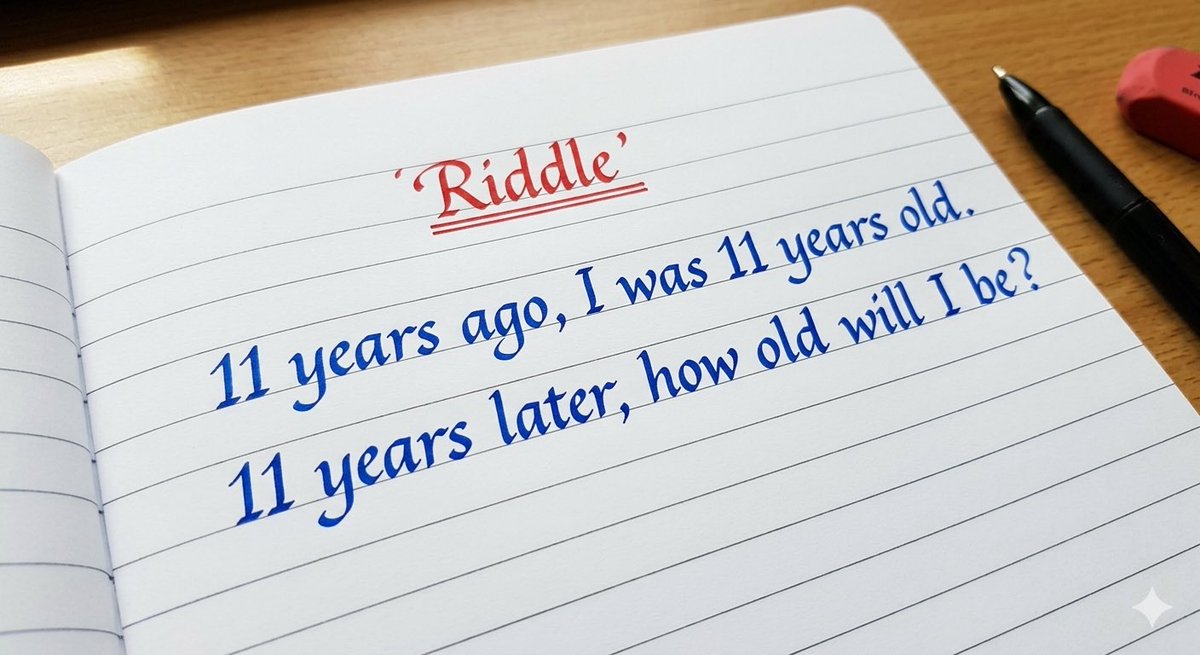 'Riddle'
11 years ago, I was 11 years old.
11 years later, how old will I be?